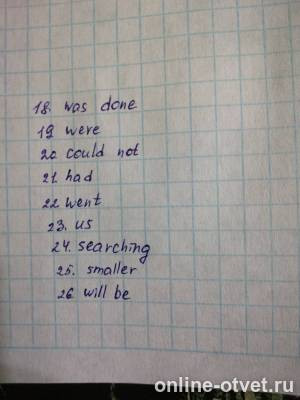 18. was done
19 were
20 could not
21. had
22 went
23. us
24. searching
25. smaller
26 will be
online-otvet.ru